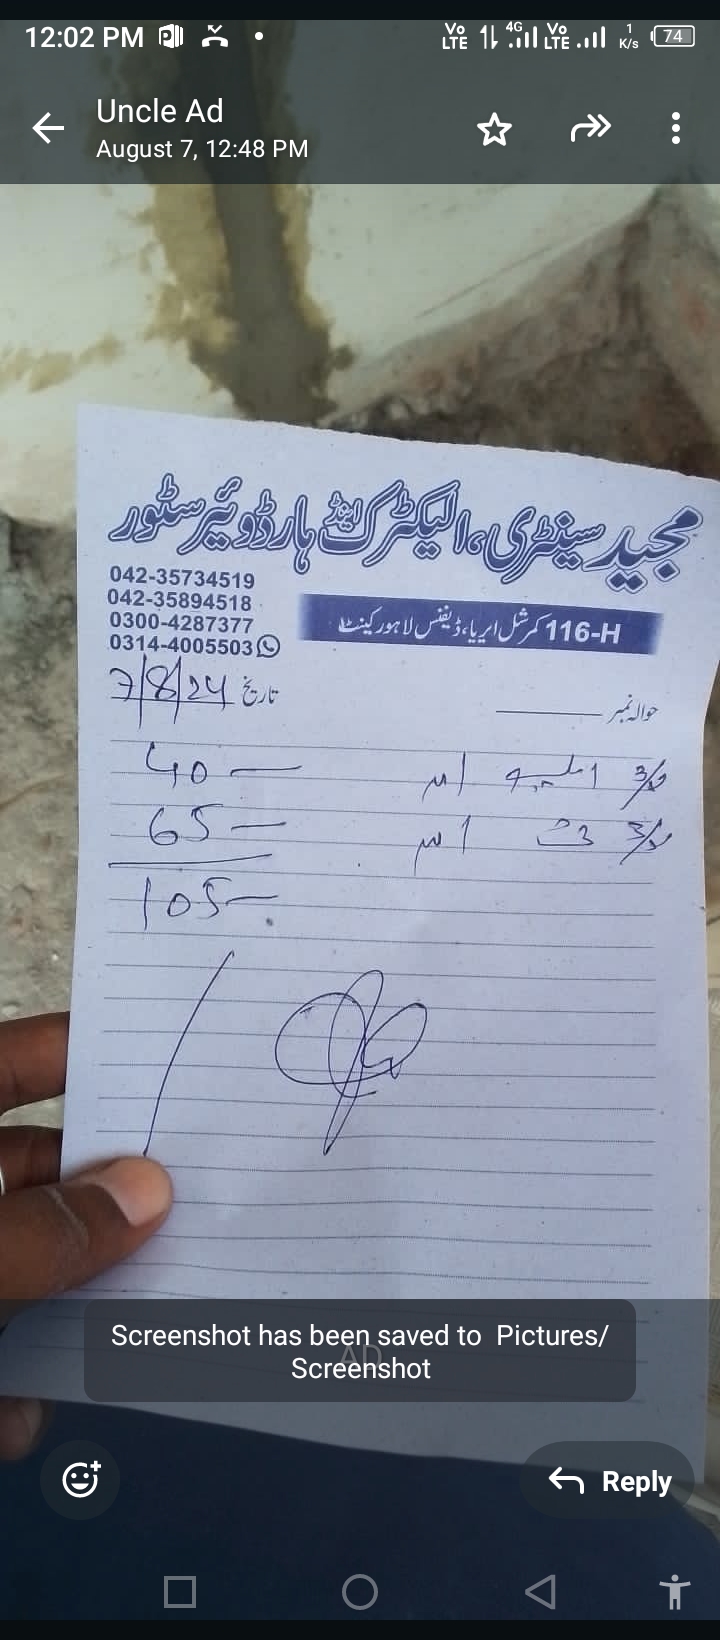 12:02 PM
Vo LTE 4G Vo LTE 1 K/s 74
Uncle Ad
August 7, 12:48 PM
مجید سینٹری، الیکٹرک اینڈ ہارڈویئر سٹور
042-35734519
042-35894518
0300-4287377
0314-4005503
116-H کمرشل ایریا، ڈیفنس لاہور کینٹ
تاریخ 7/8/24
حوالہ نمبر
40
65
105
Screenshot has been saved to Pictures/
Screenshot
Reply